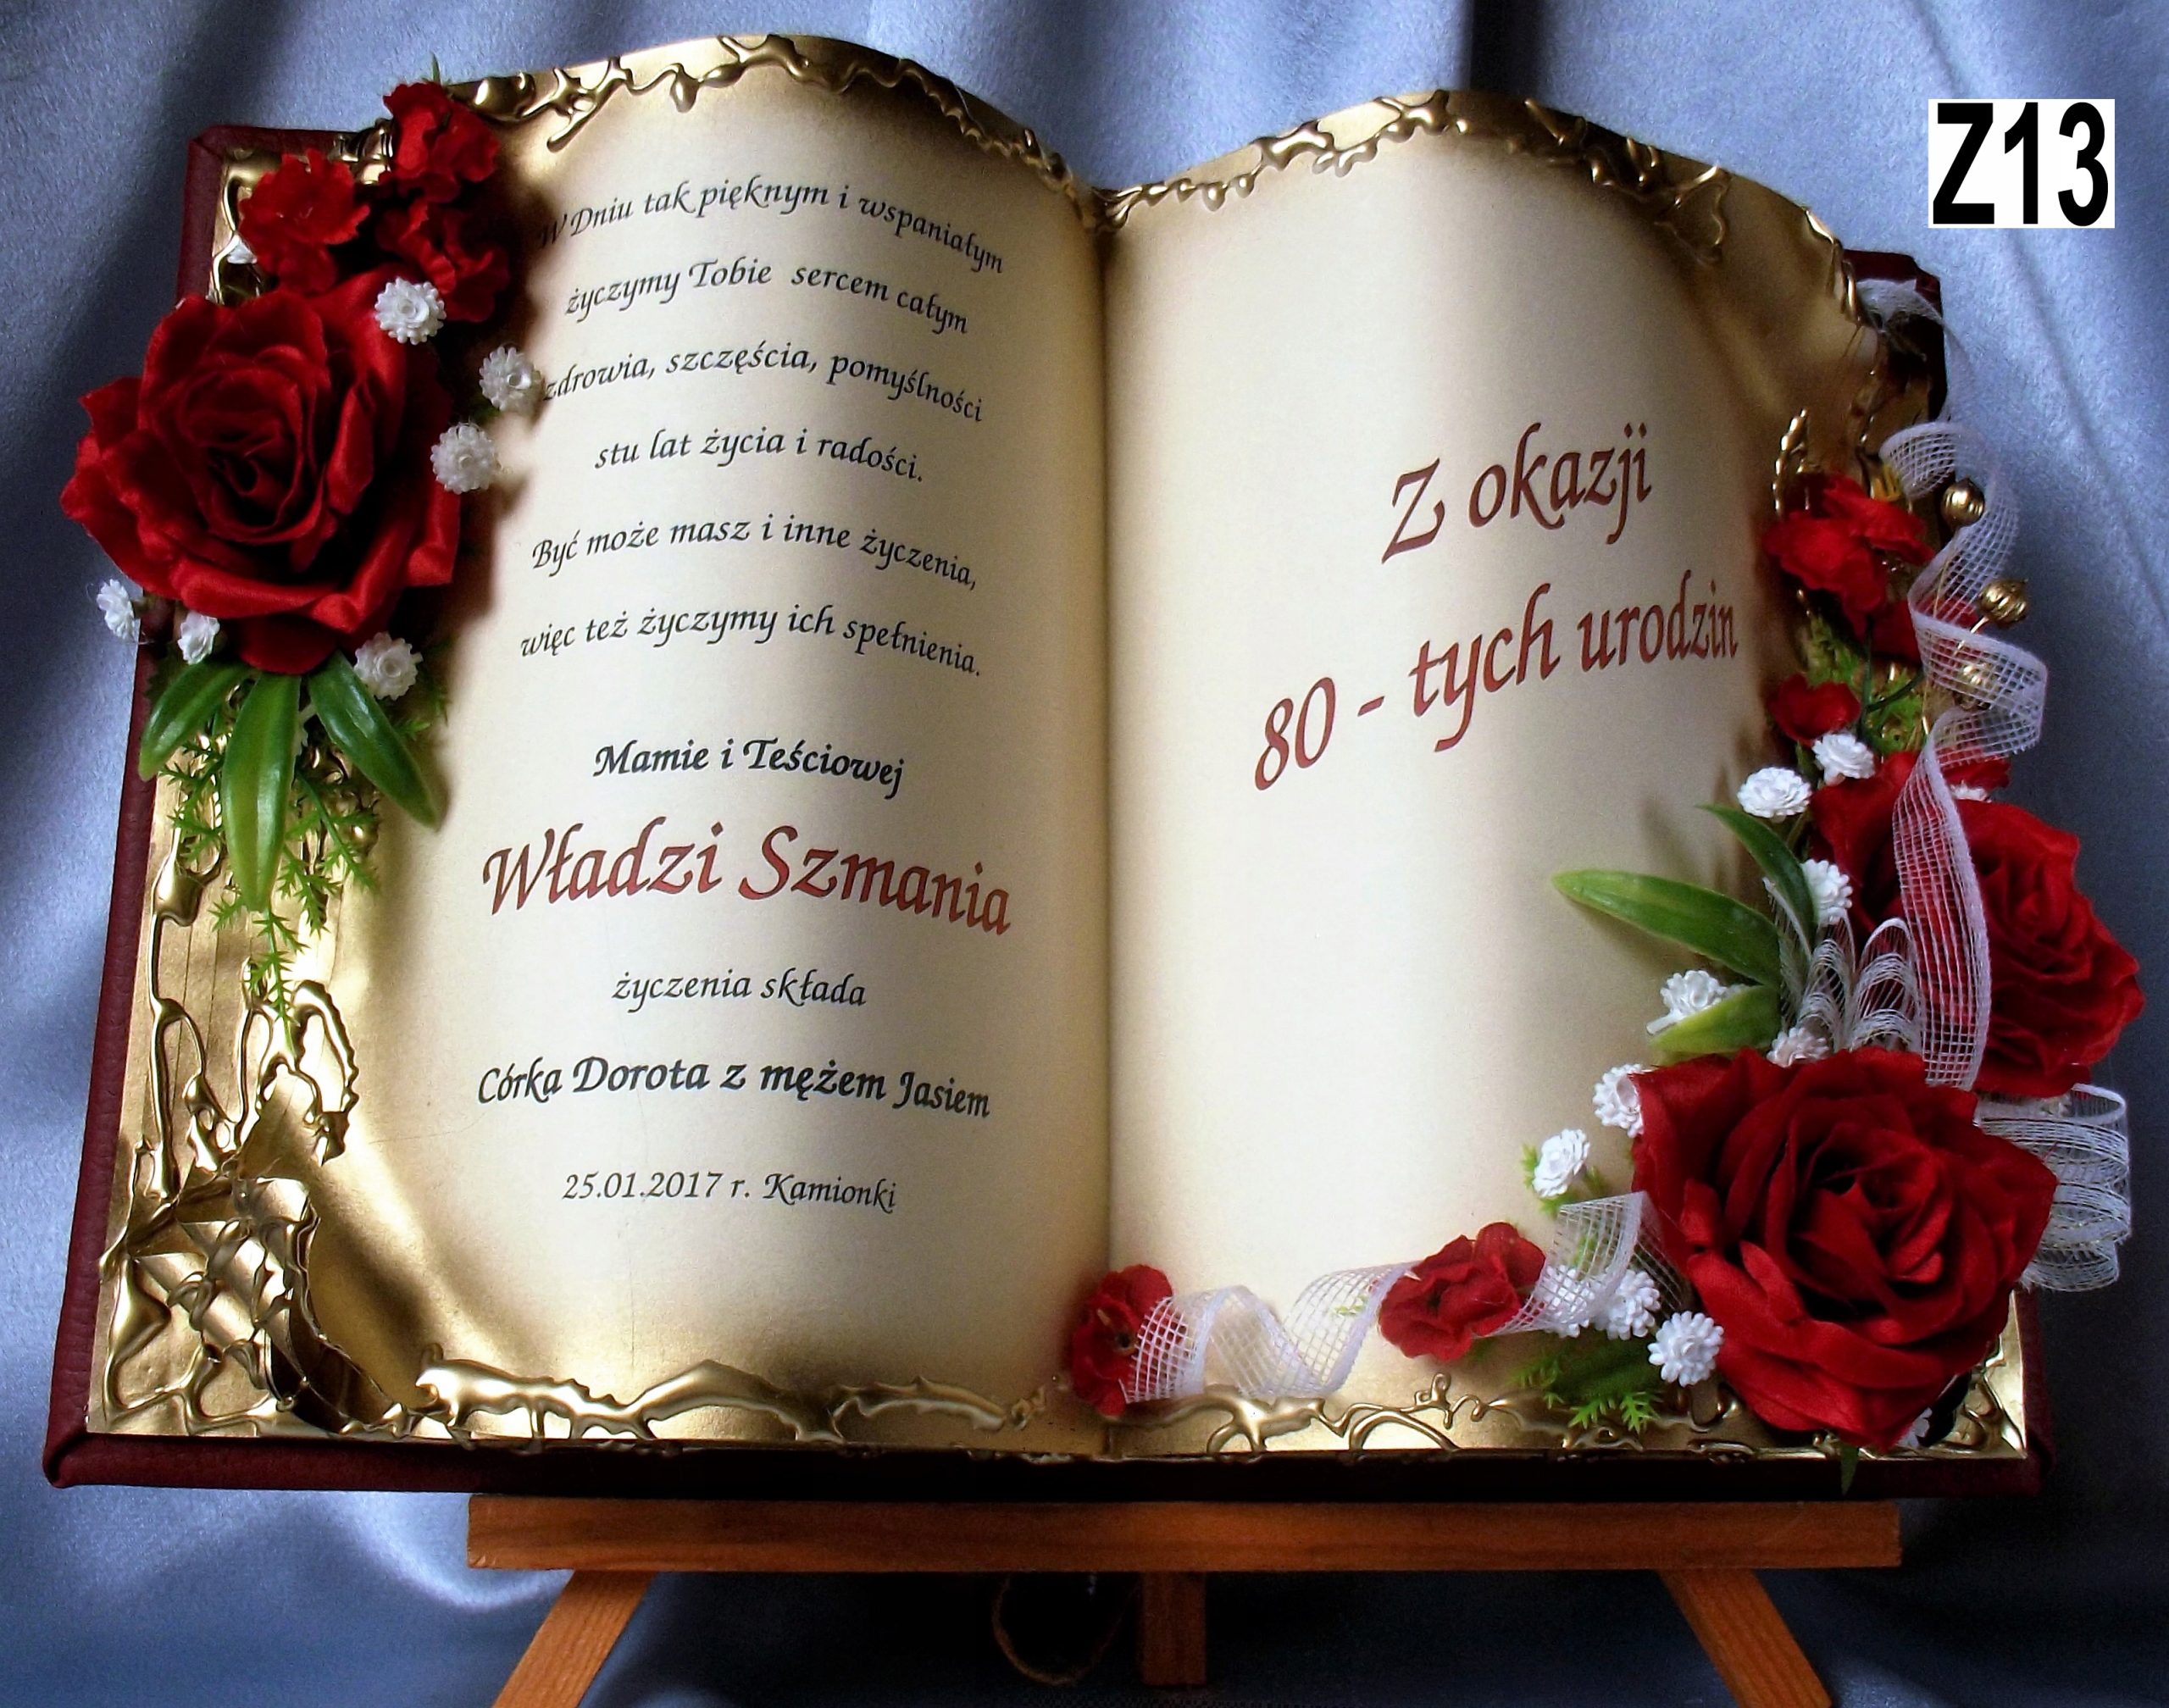 W Dniu tak pięknym i wspaniałym
życzymy Tobie sercem całym
zdrowia, szczęścia, pomyślności
stu lat życia i radości.
Być może masz i inne życzenia,
więc też życzymy ich spełnienia.
Mamie i Teściowej
Władzi Szmania
życzenia składa
Córka Dorota z mężem Jasiem
25.01.2017 r. Kamionki
Z okazji
80 - tych urodzin
Z13